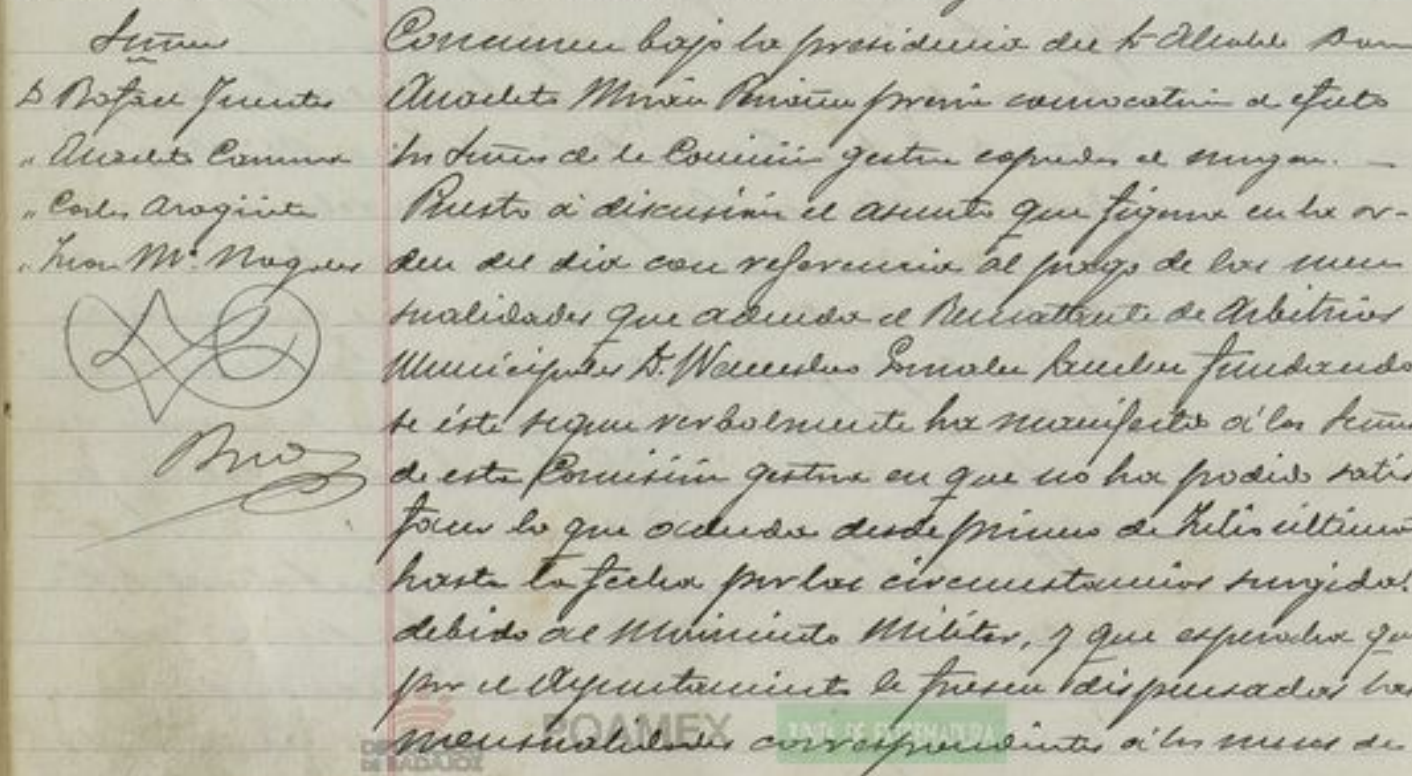 Señores
D Rafael Fuentes
" Anacleto
" Carlos
" Juan Mª Nogales
Concurren bajo la presidencia del Sr Alcalde Don
Anacleto previa convocatoria al efecto
los Señores de la Comisión gestora espresados al margen. —
Puesto á discusión el asunto que figura en la or-
den del dia con referencia al pago de las men
sualidades que adeuda el Rematante de Arbitrios
Municipales D. Wenceslao Gonzalez Sanchez fundando
se éste segun verbalmente ha manifestado á los Señores
de esta Comisión gestora en que no ha podido satis
facer lo que adeuda desde primero de Julio último
hasta la fecha por las circunstancias surgidas
debido al Movimiento Militar, y que esperaba que
por el Ayuntamiento le fuesen dispensadas las
mensualidades correspondientes á los meses de
POAMEX
JUNTA DE EXTREMADURA
DE BADAJOZ